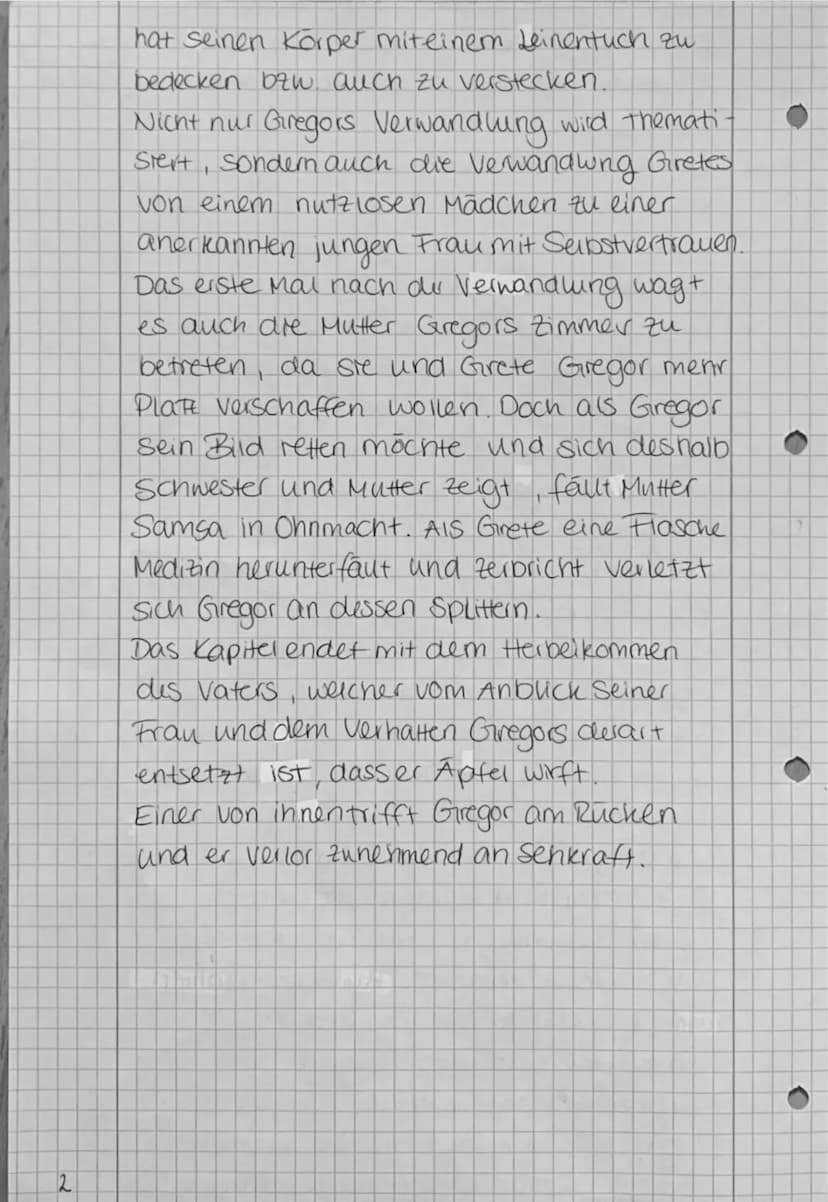 hat seinen Körper mit einem Leinentuch zu
bedecken bzw. auch zu verstecken.
Nicht nur Gregors Verwandlung wird themati-
siert, sondern auch die Verwandlung Gretes
von einem nutzlosen Mädchen zu einer
anerkannten jungen Frau mit Selbstvertrauen.
Das erste Mal nach der Verwandlung wagt
es auch die Mutter Gregors Zimmer zu
betreten, da sie und Grete Gregor mehr
Platz verschaffen wollen. Doch als Gregor
sein Bild retten möchte und sich deshalb
Schwester und Mutter zeigt, fällt Mutter
Samsa in Ohnmacht. Als Grete eine Flasche
Medizin herunterfällt und zerbricht verletzt
sich Gregor an dessen Splittern.
Das Kapitel endet mit dem Herbeikommen
des Vaters, welcher vom Anblick seiner
Frau und dem Verhalten Gregors derart
entsetzt ist, dass er Äpfel wirft.
Einer von ihnen trifft Gregor am Rücken
und er verlor zunehmend an Sehkraft.
2